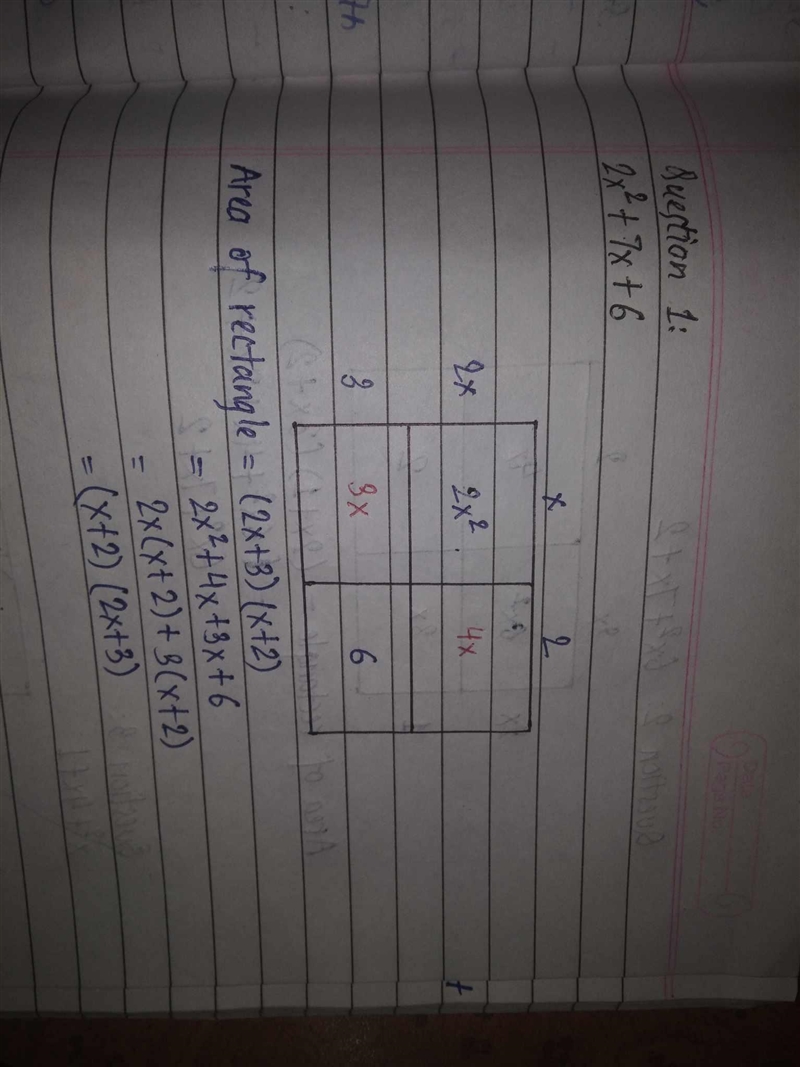 Question 1:
2x² + 7x + 6
x 2
2x 2x² 4x
3 3x 6
Area of rectangle = (2x+3) (x+2)
= 2x² + 4x + 3x + 6
= 2x(x+2) + 3(x+2)
= (x+2) (2x+3)